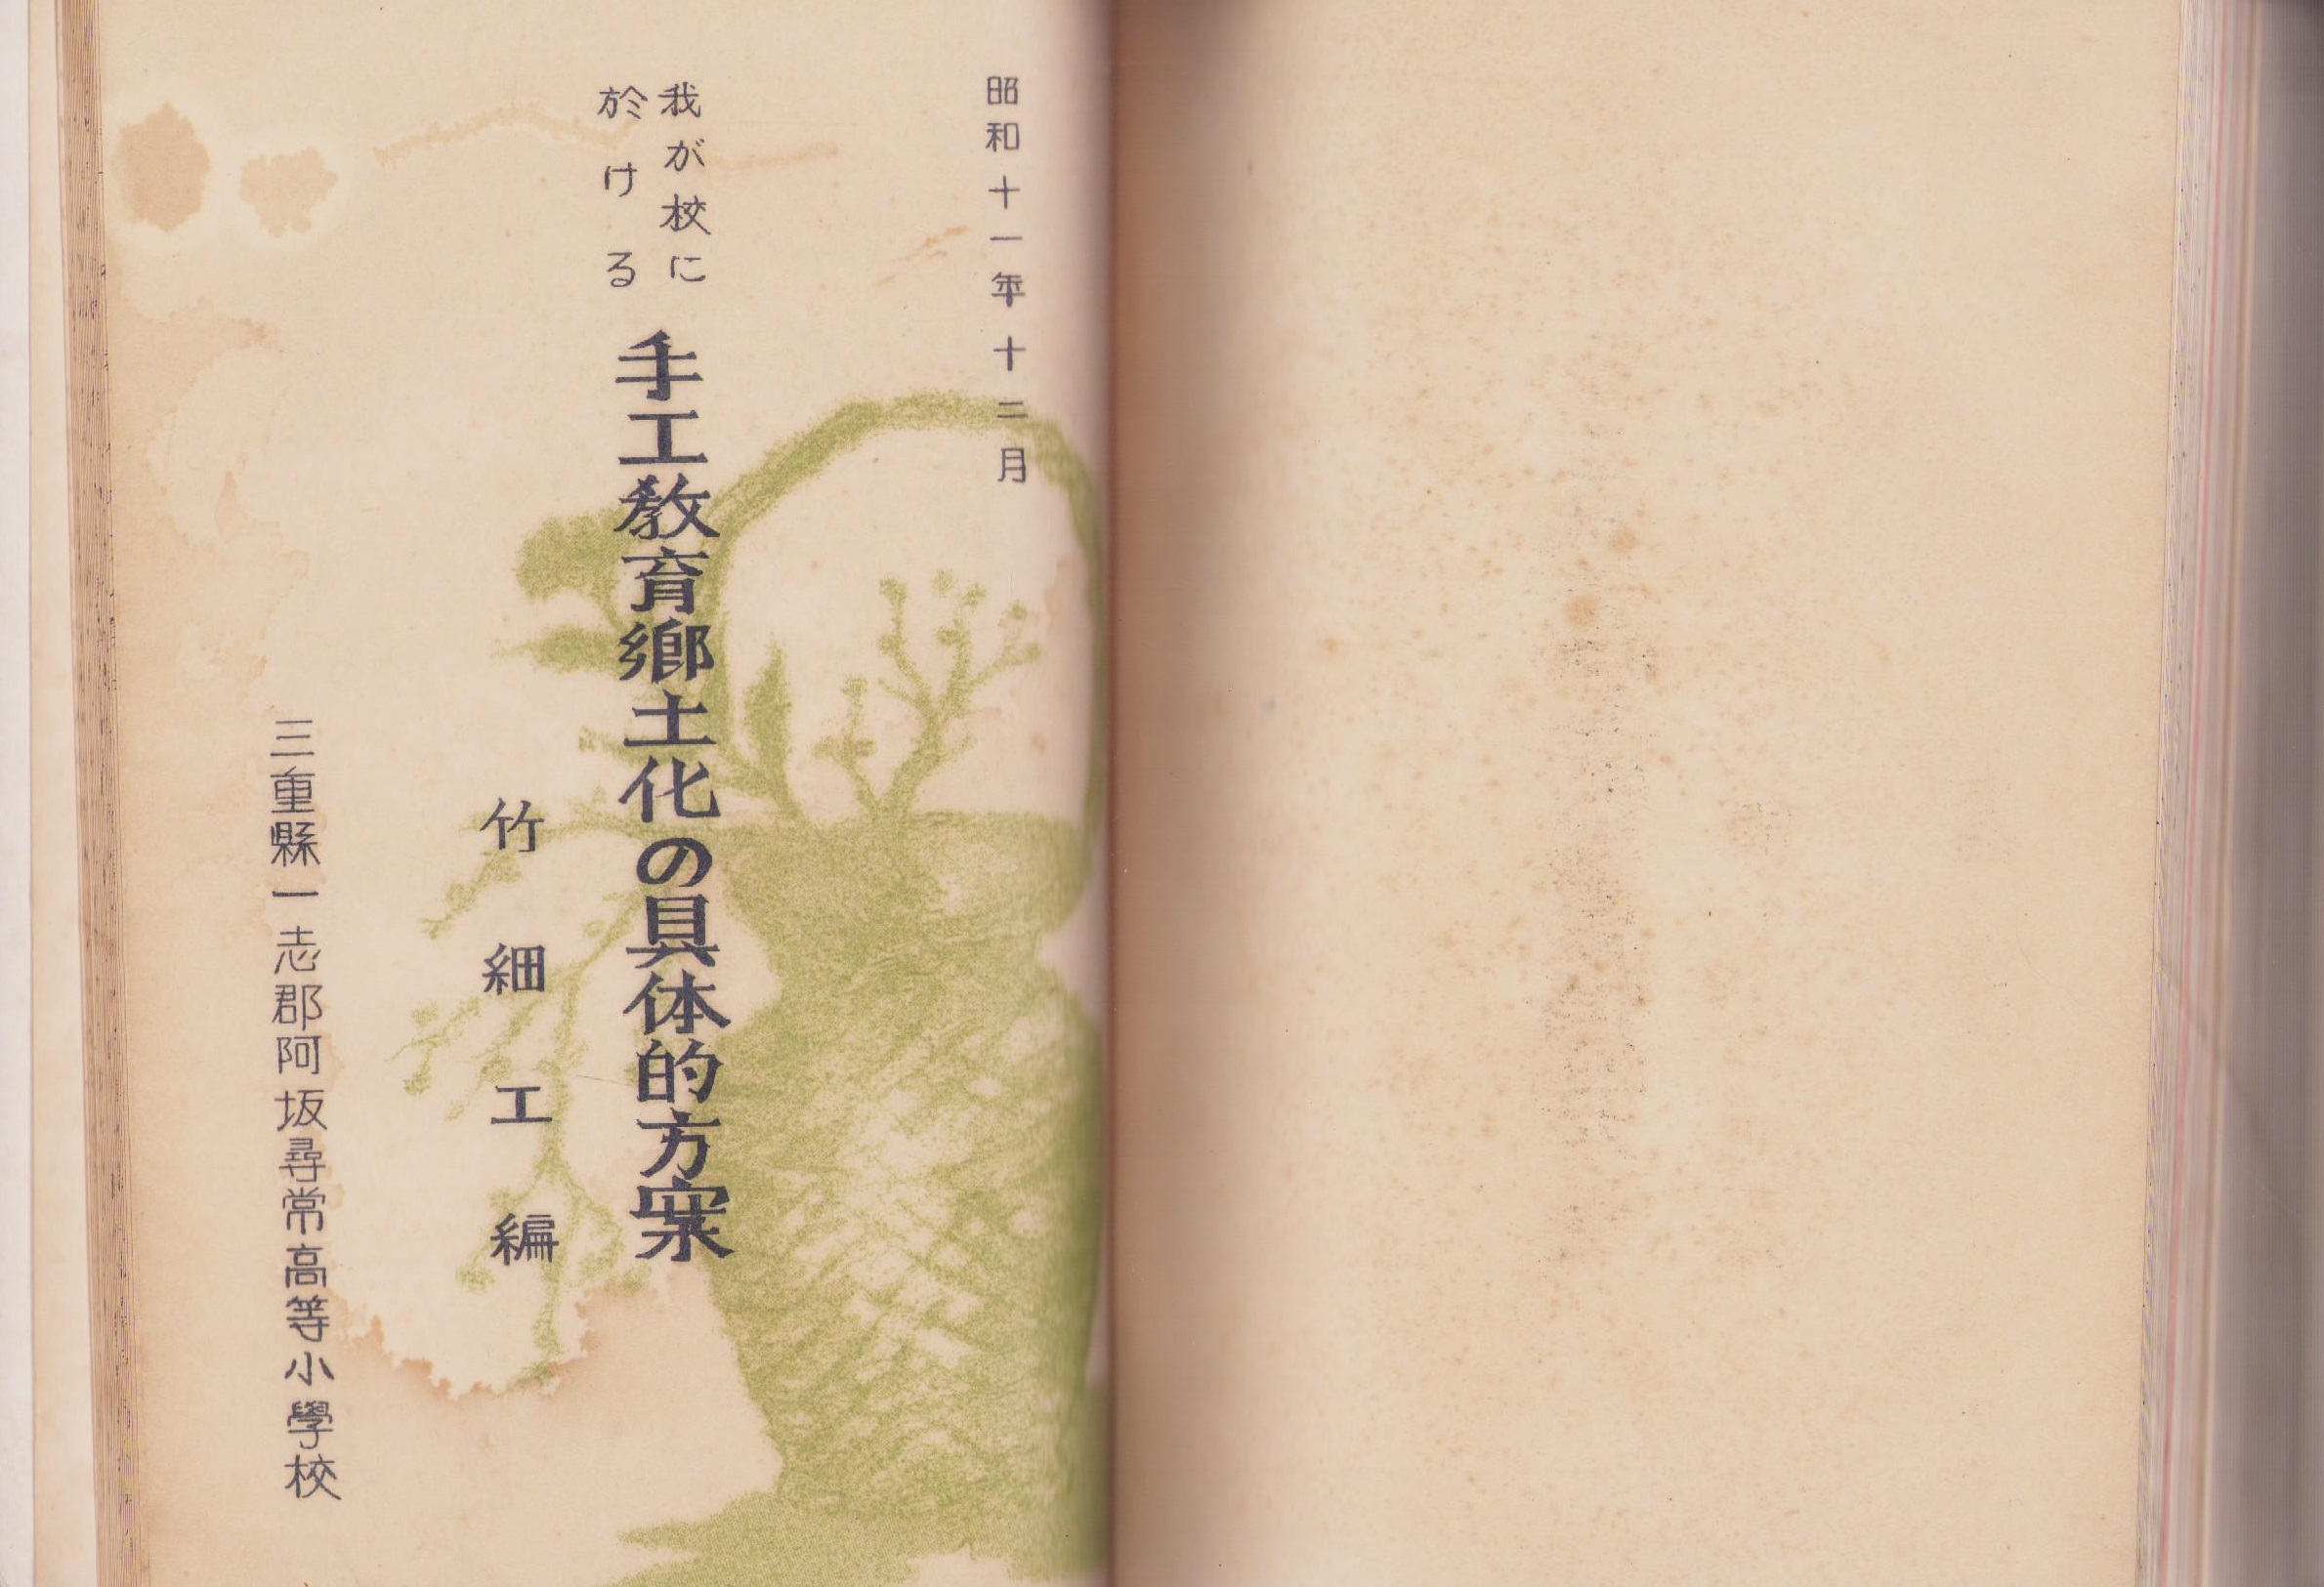 昭和十一年十二月
我が校に
於ける
手工教育鄕土化の具体的方案
竹細工編
三重縣一志郡阿坂尋常高等小學校